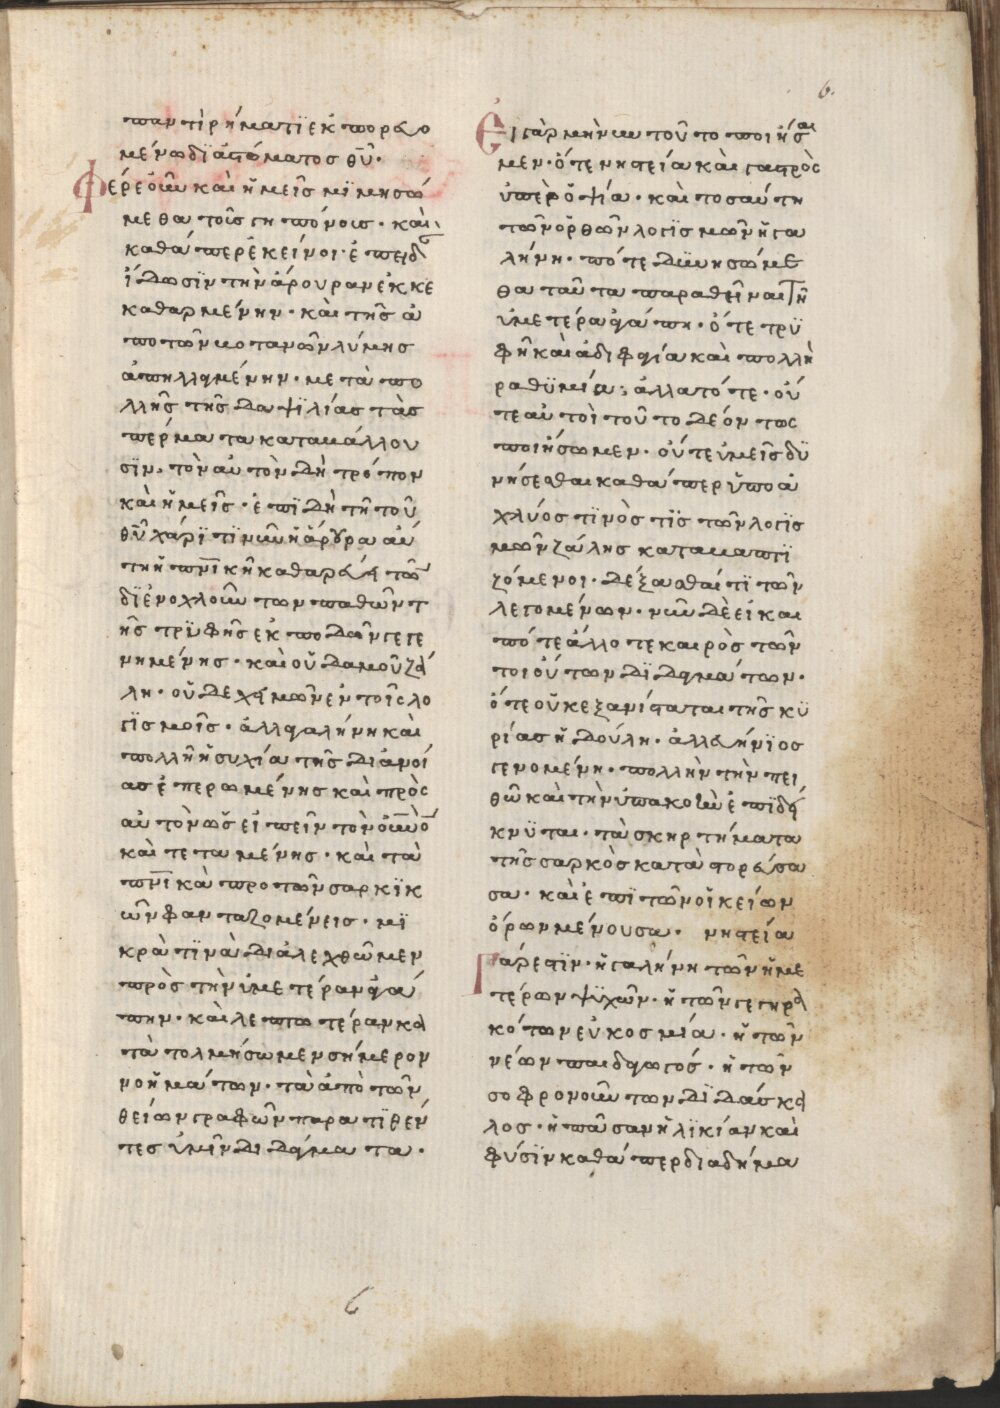 6.
παντὶ ῥήματϊ ἐκπορευο
μένω διὰ στόματος θῦ·
Φέρε οὖν καὶ ἡμεῖς μϊμησώ
μεθα τοὺς γηπόνους· καὶ
καθάπερ ἐκεῖνοι· ἐπειδ
ἴδωσϊν τὴν ἄρουραν ἐκκε
καθαρμένην· καὶ τῆς ἀ
πὸ τῶν βοτανῶν λύμης
ἀπηλλαγμένην· μετὰ πο
λλῆς τῆς δαψϊλίας τὰ σ
πέρματα καταβάλλου
σϊν· τὸν αὐτὸν δὴ τρόπον
καὶ ἡμεῖς· ἐπϊδὴ τῆ τοῦ
θῦ χάρϊτϊ νῦν ἡ ἄρουρα αὕ
τη ἡ πνϊκὴ καθαρεύει τῶν
διενοχλούντων παθῶν τ
ῆς τρϋφῆς ἐκποδὼν γεγε
νημένης· καὶ οὐδαμοῦ ζά
λη· οὐδὲ χειμὼν ἐν τοῖς λο
γϊσμοῖς· ἀλλὰ γαλήνη καὶ
πολλὴ ἡσυχία τῆς διανοί
ας ἐπερωμένης καὶ πρὸς
αὐτὸν ὡς εἰπεῖν τὸν οὐνὸν
καὶ τεταμένης· καὶ τὰ
πνϊκὰ πρὸ τῶν σαρκϊκ
ῶν φανταζομένεις· μϊ
κρὰ τϊνὰ διαλεχθῶμεν
πρὸς τὴν ὑμετέραν ἀγά
πην· καὶ λεπτωτέραν κα
τατολμήσωμεν σήμερον
νοημάτων· τὰ ἀπὸ τῶν
θείων γραφῶν παρατϊθέν
τες ὑμῖν διδάγματα·
Εἰ γὰρ μὴ νῦν τοῦτο ποιήσαι
μεν· ὅτε νηστεία καὶ γαστρὸς
ὑπεροψία· καὶ τοσαύτη
τῶν ὀρθῶν λογϊσμῶν ἡ γα
λήνη· πότε δυνησώμε
θα ταῦτα παραθεῖναι τῆ
ὑμετέρα ἀγάπη· ὅτε τρϋ
φὴ καὶ ἀδιφαγία καὶ πολλὴ
ραθϋμία; ἀλλὰ τότε· οὔ
τε αὐτοὶ τοῦτο δεόντως
ποιήσωμεν· οὔτε ὑμεῖς δϋ
νήσεσθαι καθάπερ ὑπὸ ἀ
χλύος τϊνὸς τῖς τῶν λογϊσ
μῶν ζάλης καταβαπτϊ
ζόμενοι· δέξασθαί τϊ τῶν
λεγομένων· νῦν δὲ εἰ καὶ
πότε ἄλλοτε καιρὸς τῶν
τοιούτων δϊδαγμάτων·
ὅτε οὐκ ἐξανίσταται τῆς κϋ
ρίας ἡ δούλη· ἀλλ εὐήνϊος
γενομένη· πολλὴν τὴν πει
θὼ καὶ τὴν ὑπακοὴν ἐπϊδεί
κνϋται· τὰ σκηρτήματα
τῆς σαρκὸς καταστορεύσα
σα· καὶ ἐπὶ τῶν οἰκείων
ὅρων μένουσα· νηστεία
Γάρ ἐστϊν· ἡ γαλήνη τῶν ἡμε
τέρων ψϋχῶν· ἡ τῶν γεγηρα
κότων εὐκοσμία· ἡ τῶν
νέων παιδαγωγός· ἡ τῶν
σοφρονούντων δϊδάσκα
λος· ἡ πᾶσαν ἡλϊκίαν καὶ
φύσϊν καθάπερ διαδήμα
6